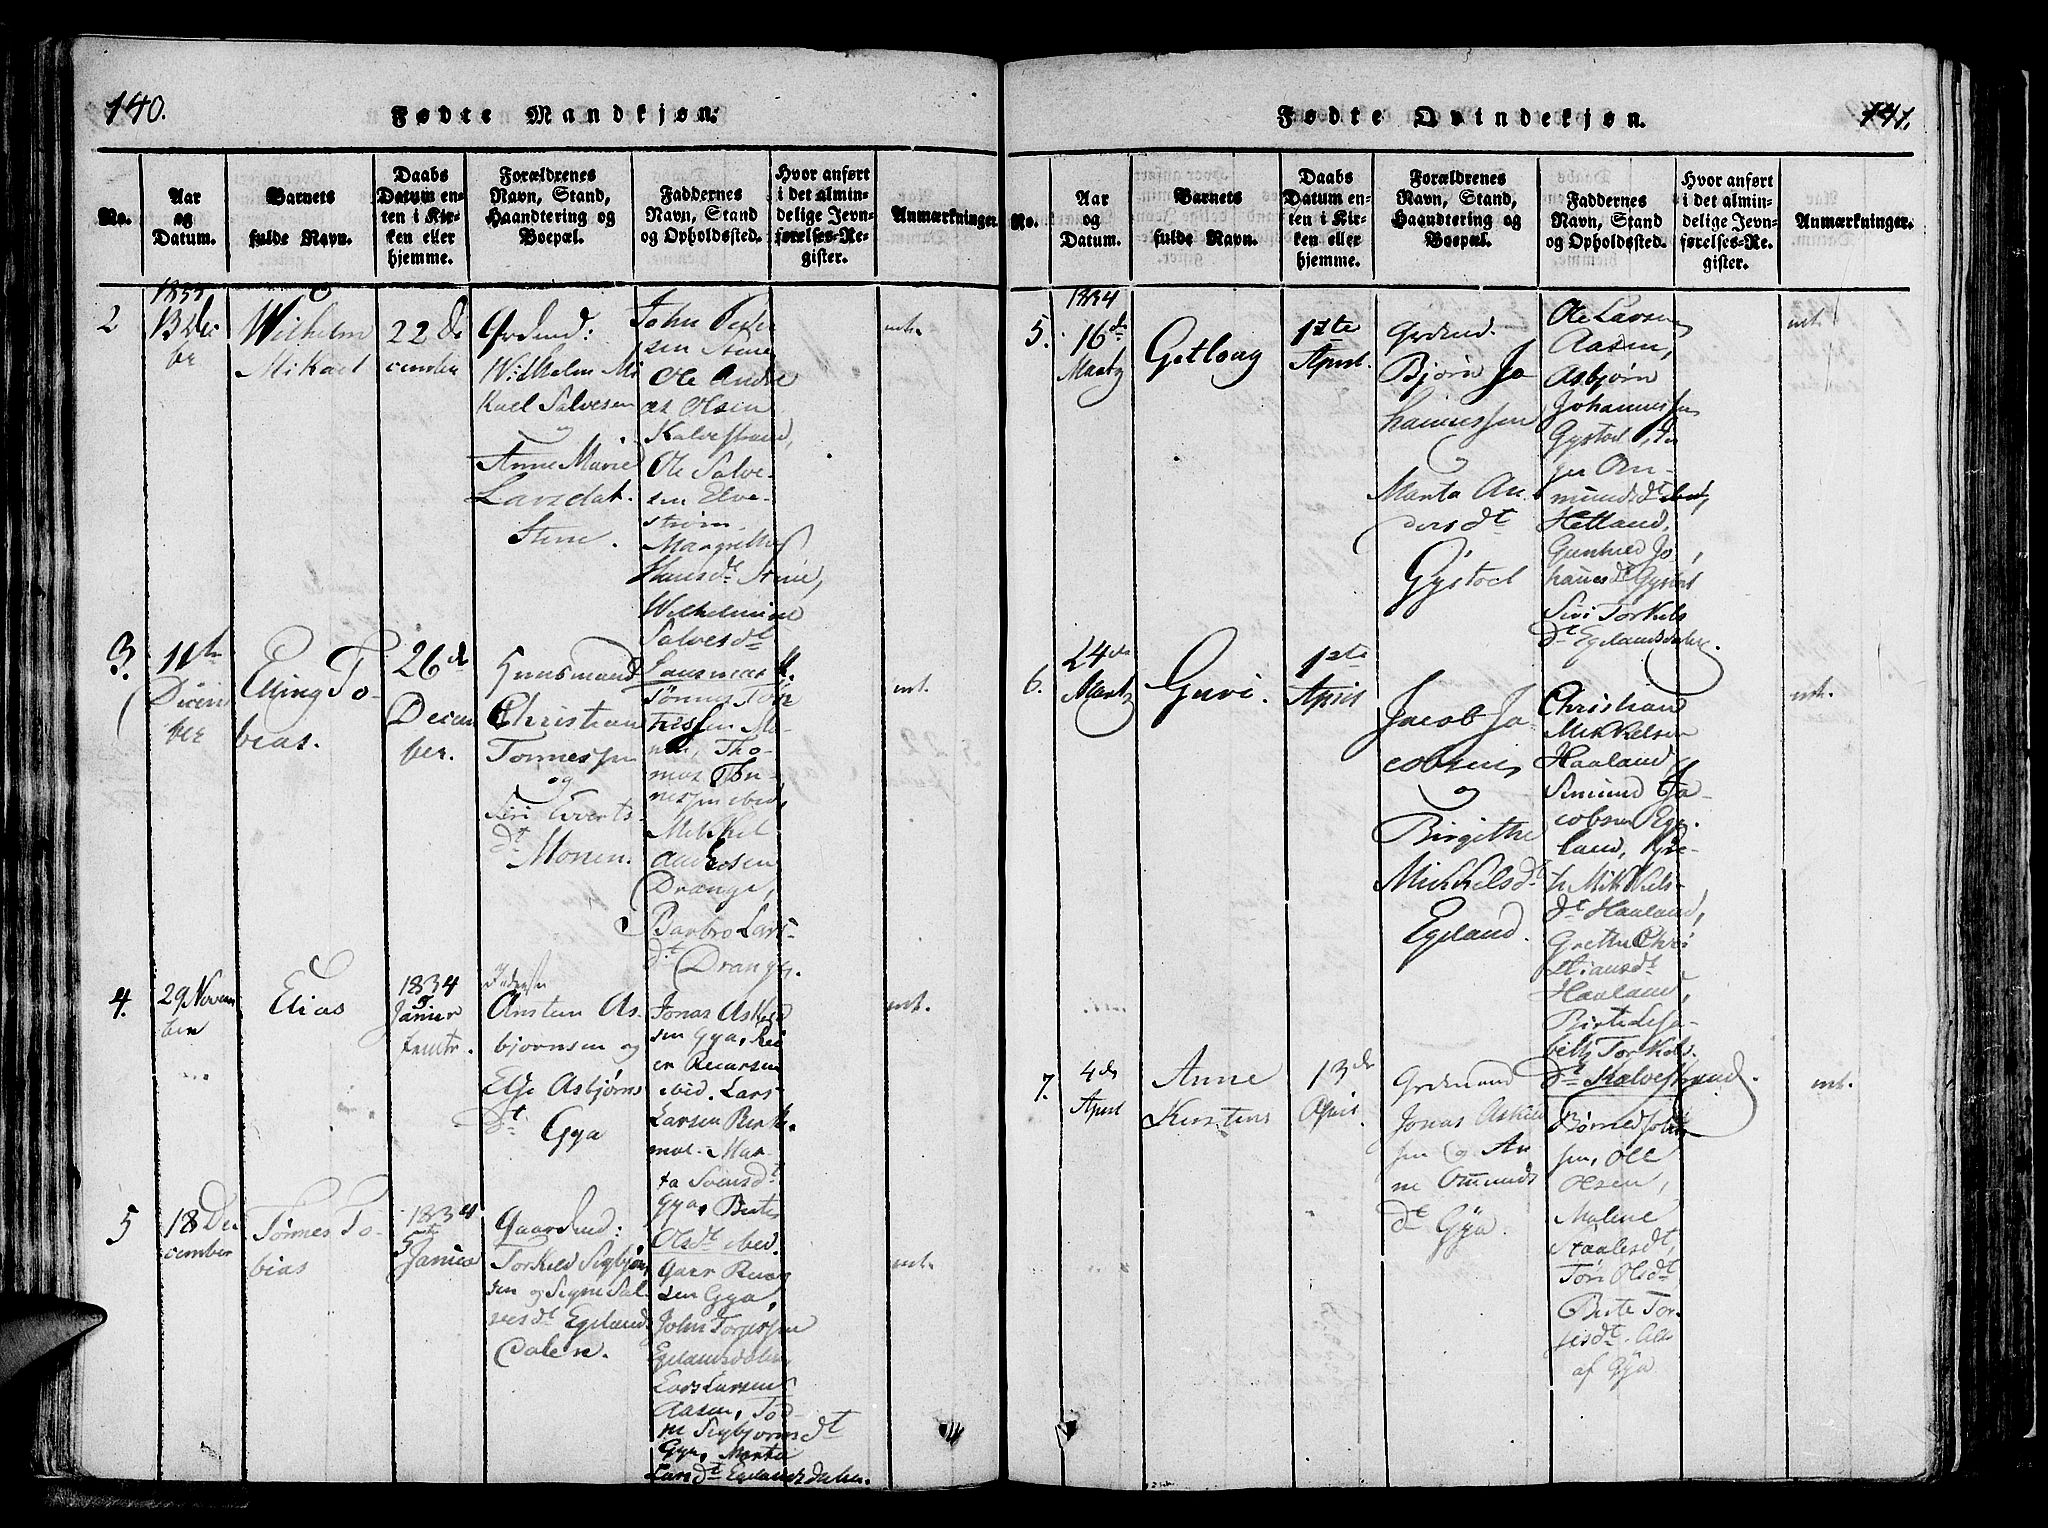 140.
Fødte Mandkjøn:
No.
Aar
og
Datum.
Barnets
fulde Navn.
Daabs
Datum en-
ten i Kir-
ken eller
hjemme.
Forældrenes
Navn, Stand,
Haandtering og
Boepæl.
Faddernes
Navn, Stand
og Opholdssted.
Hvor anført
i det almin-
delige Jevn-
førelses-Re-
gister.
Anmærkninger.
2
1833
13 De
br
Wilhelm
Mikael
22 De
cember
Grdmd:
Wilhelm Mi
kael Salvesen
og
Anne Marie
Larsdat.
Stene.
John Peder
sen Stene
Ole Andre
as Olsen
Kalvestrand,
Ole Salve-
sen Elve-
strøm.
Margrethe
Hansdt Stene,
Wilhelmine
Salvesdt
3.
11te
Decem
ber
Elling To-
bias.
26de
Decem
ber.
Huusmand
Christian
Tønnessen
og
Siri Evertsdt
Monen.
Tønnes Tøn
nessen Mo-
nen, Tho-
mas Tøn-
nessen ibid,
Mikkel
Andersen
Drange,
Barbro Lars-
dt Drange.
4.
29 Novem
ber
Elias
1834
5
Januar
Ansten As-
bjørnsen og
Else Asbjørns
dt Gya
Jonas Askild
sen Gya, Rei
er Reiersen
ibid. Lars
Larsen Birke
moe. Mar-
ta Svensdt
Gya, Berte
Olsdt ibid.
5
18 De
cember
Tønnes To-
bias
1834
5te
Januar
Gaardmd:
Torkild Sigbjørn
sen og Signe Sal
vesdt Egelands
Dalen.
sen Gya,
John Torgersen
Egelandsdalen,
Lars Larsen
Aasen, To
ne Sigbjørnsdt
Gya, Marte
Larsdt Egelandsdalen.
141.
Fødte Qvindekjøn.
No.
Aar
og
Datum.
Barnets
fulde Navn.
Daabs
Datum en-
ten i Kir-
ken eller
hjemme.
Forældrenes
Navn, Stand,
Haandtering og
Boepæl.
Faddernes
Navn, Stand
og Opholdssted.
Hvor anført
i det almin-
delige Jevn-
førelses-Re-
gister.
Anmærkninger.
5.
1834
16de
Martz
Gotlong
1ste
April.
Grdmd.
Bjørn Jo
hannessen
og
Marta An
dersdt
Gystøl
Ole Larsen
Aasen,
Asbjørn
Johannessen
Gystøl,
Om-
mundsdt ibid,
Hetland,
Gunhild Jo
hannesdt Gystøl
Siri Torkels
dt Egelandsdalen.
6.
24de
Martz
Guri.
1ste
April
Jacob Ja-
cobsen
og
Birgithe
Mikkelsdt
Egeland.
Christian
Mikkelsen
Haaland
Simund Ja-
cobsen Ege-
land,
Mikkels-
dt Haaland,
Grethe Chri
stiansdt
Haaland,
Birte Lisa-
beth Torkels
dt Kalvestrand.
7.
4de
April
Anne
Kirstine
13de
April.
Grdmand
Jonas Askild
sen og An
ne Ommunds
dt Gya.
sen, Ole
Olsen,
Malene
Staalesdt,
Tori Olsdt
Berte Tor-
gersdt. Alle
af Gya